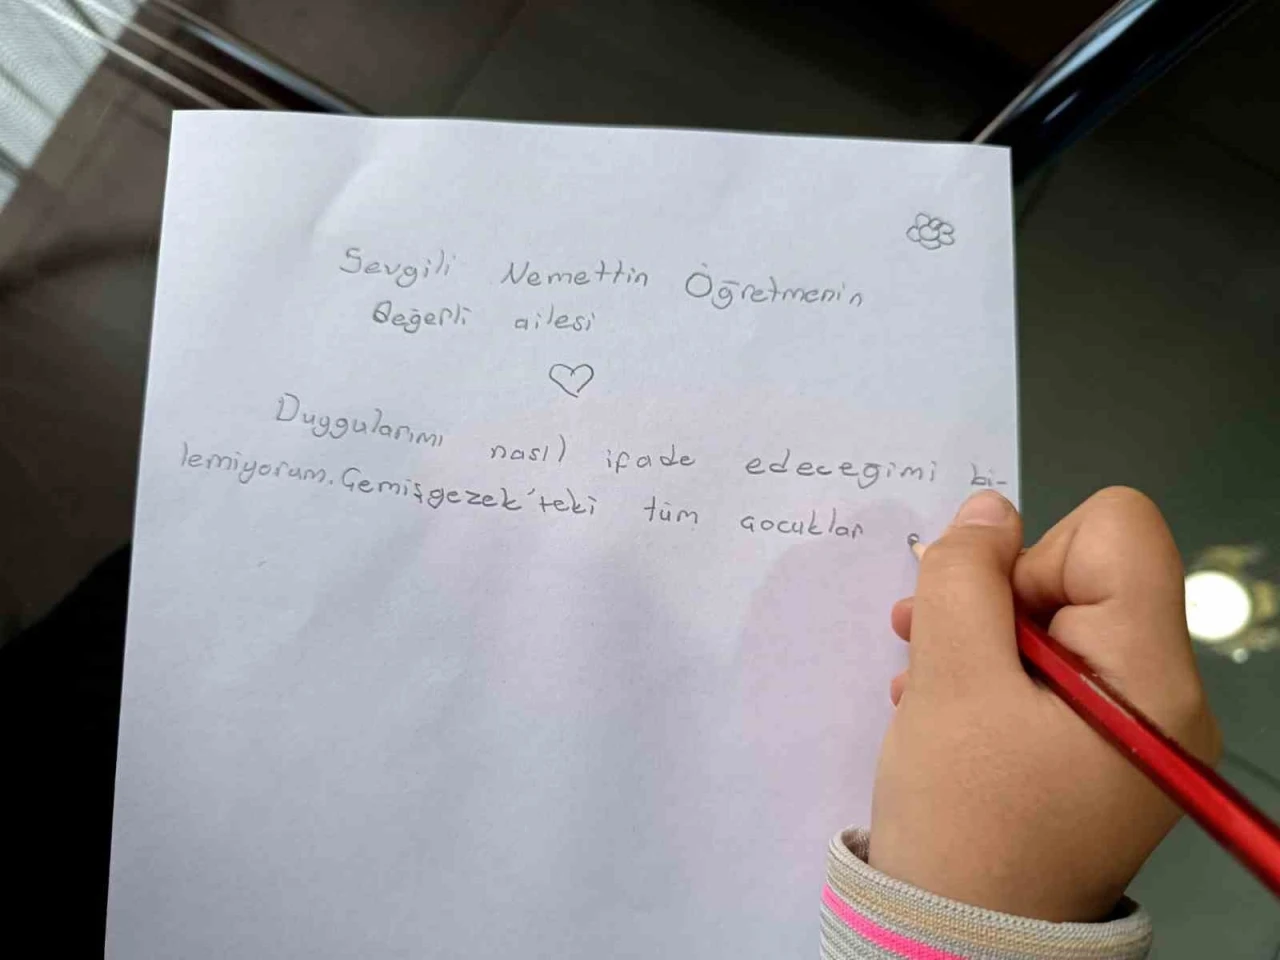 Sevgili Nemettin Öğretmenin
Değerli ailesi
Duygularımı nasıl ifade edecegimi bi-
lemiyorum. Çemişgezek'teki tüm çocuklar